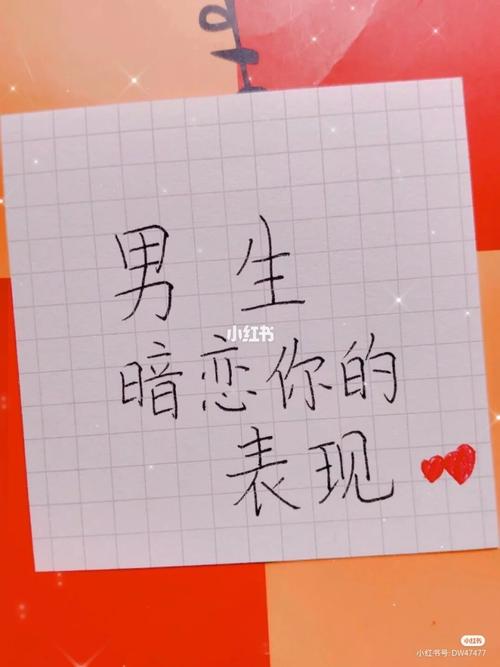 男生
小红书
暗恋你的
表现
小红书
小红书号:DW47477